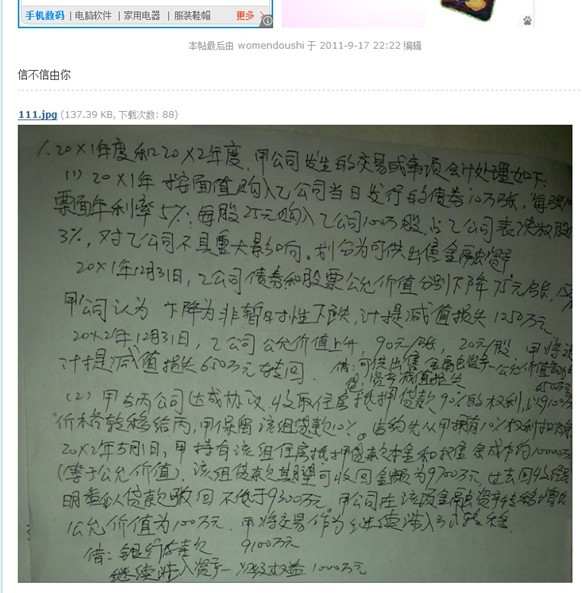 手机数码 | 电脑软件 | 家用电器 | 服装鞋帽 更多 >
本帖最后由 womendoushi 于 2011-9-17 22:22 编辑
信不信由你
111.jpg (137.39 KB, 下载次数: 88)
1. 20×1年度和20×2年度, 甲公司发生的交易或事项会计处理如下:
(1) 20×1年 按面值购入乙公司当日发行的债券10万张, 每张
票面年利率5%; 每股25元购入乙公司100万股, 占乙公司表决权股
3%, 对乙公司不具重大影响. 划分为可供出售金融资产
20×1年12月31日, 乙公司债券和股票公允价值分别下降75元/张,
甲公司认为 下降为非暂时性下跌, 计提减值损失1250万元
20×2年12月31日, 乙公司 公允价值上升, 90元/张, 20元/股, 甲将
计提减值损失650万元转回. 借: 可供出售金融资产—公允价值
贷: 资产减值损失
(2) 甲与丙公司达成协议, 收取住房抵押贷款90%的权利, 以9100
价格转移给丙, 甲保留该组贷款10%。 违约先从甲拥有10%权利扣
20×2年5月1日, 甲持有该组住房抵押贷款本金和摊余成本均10000万
(等于公允价值). 该组贷款期望可收回金额为9700万元, 过去回收经
明类似贷款收回不低于9300万元. 甲公司在该项金融资产转移
公允价值为100万元. 甲将交易作为继续涉入予以转移.
借: 银行存款 9100万元
继续涉入资产—次级权益 1000万元